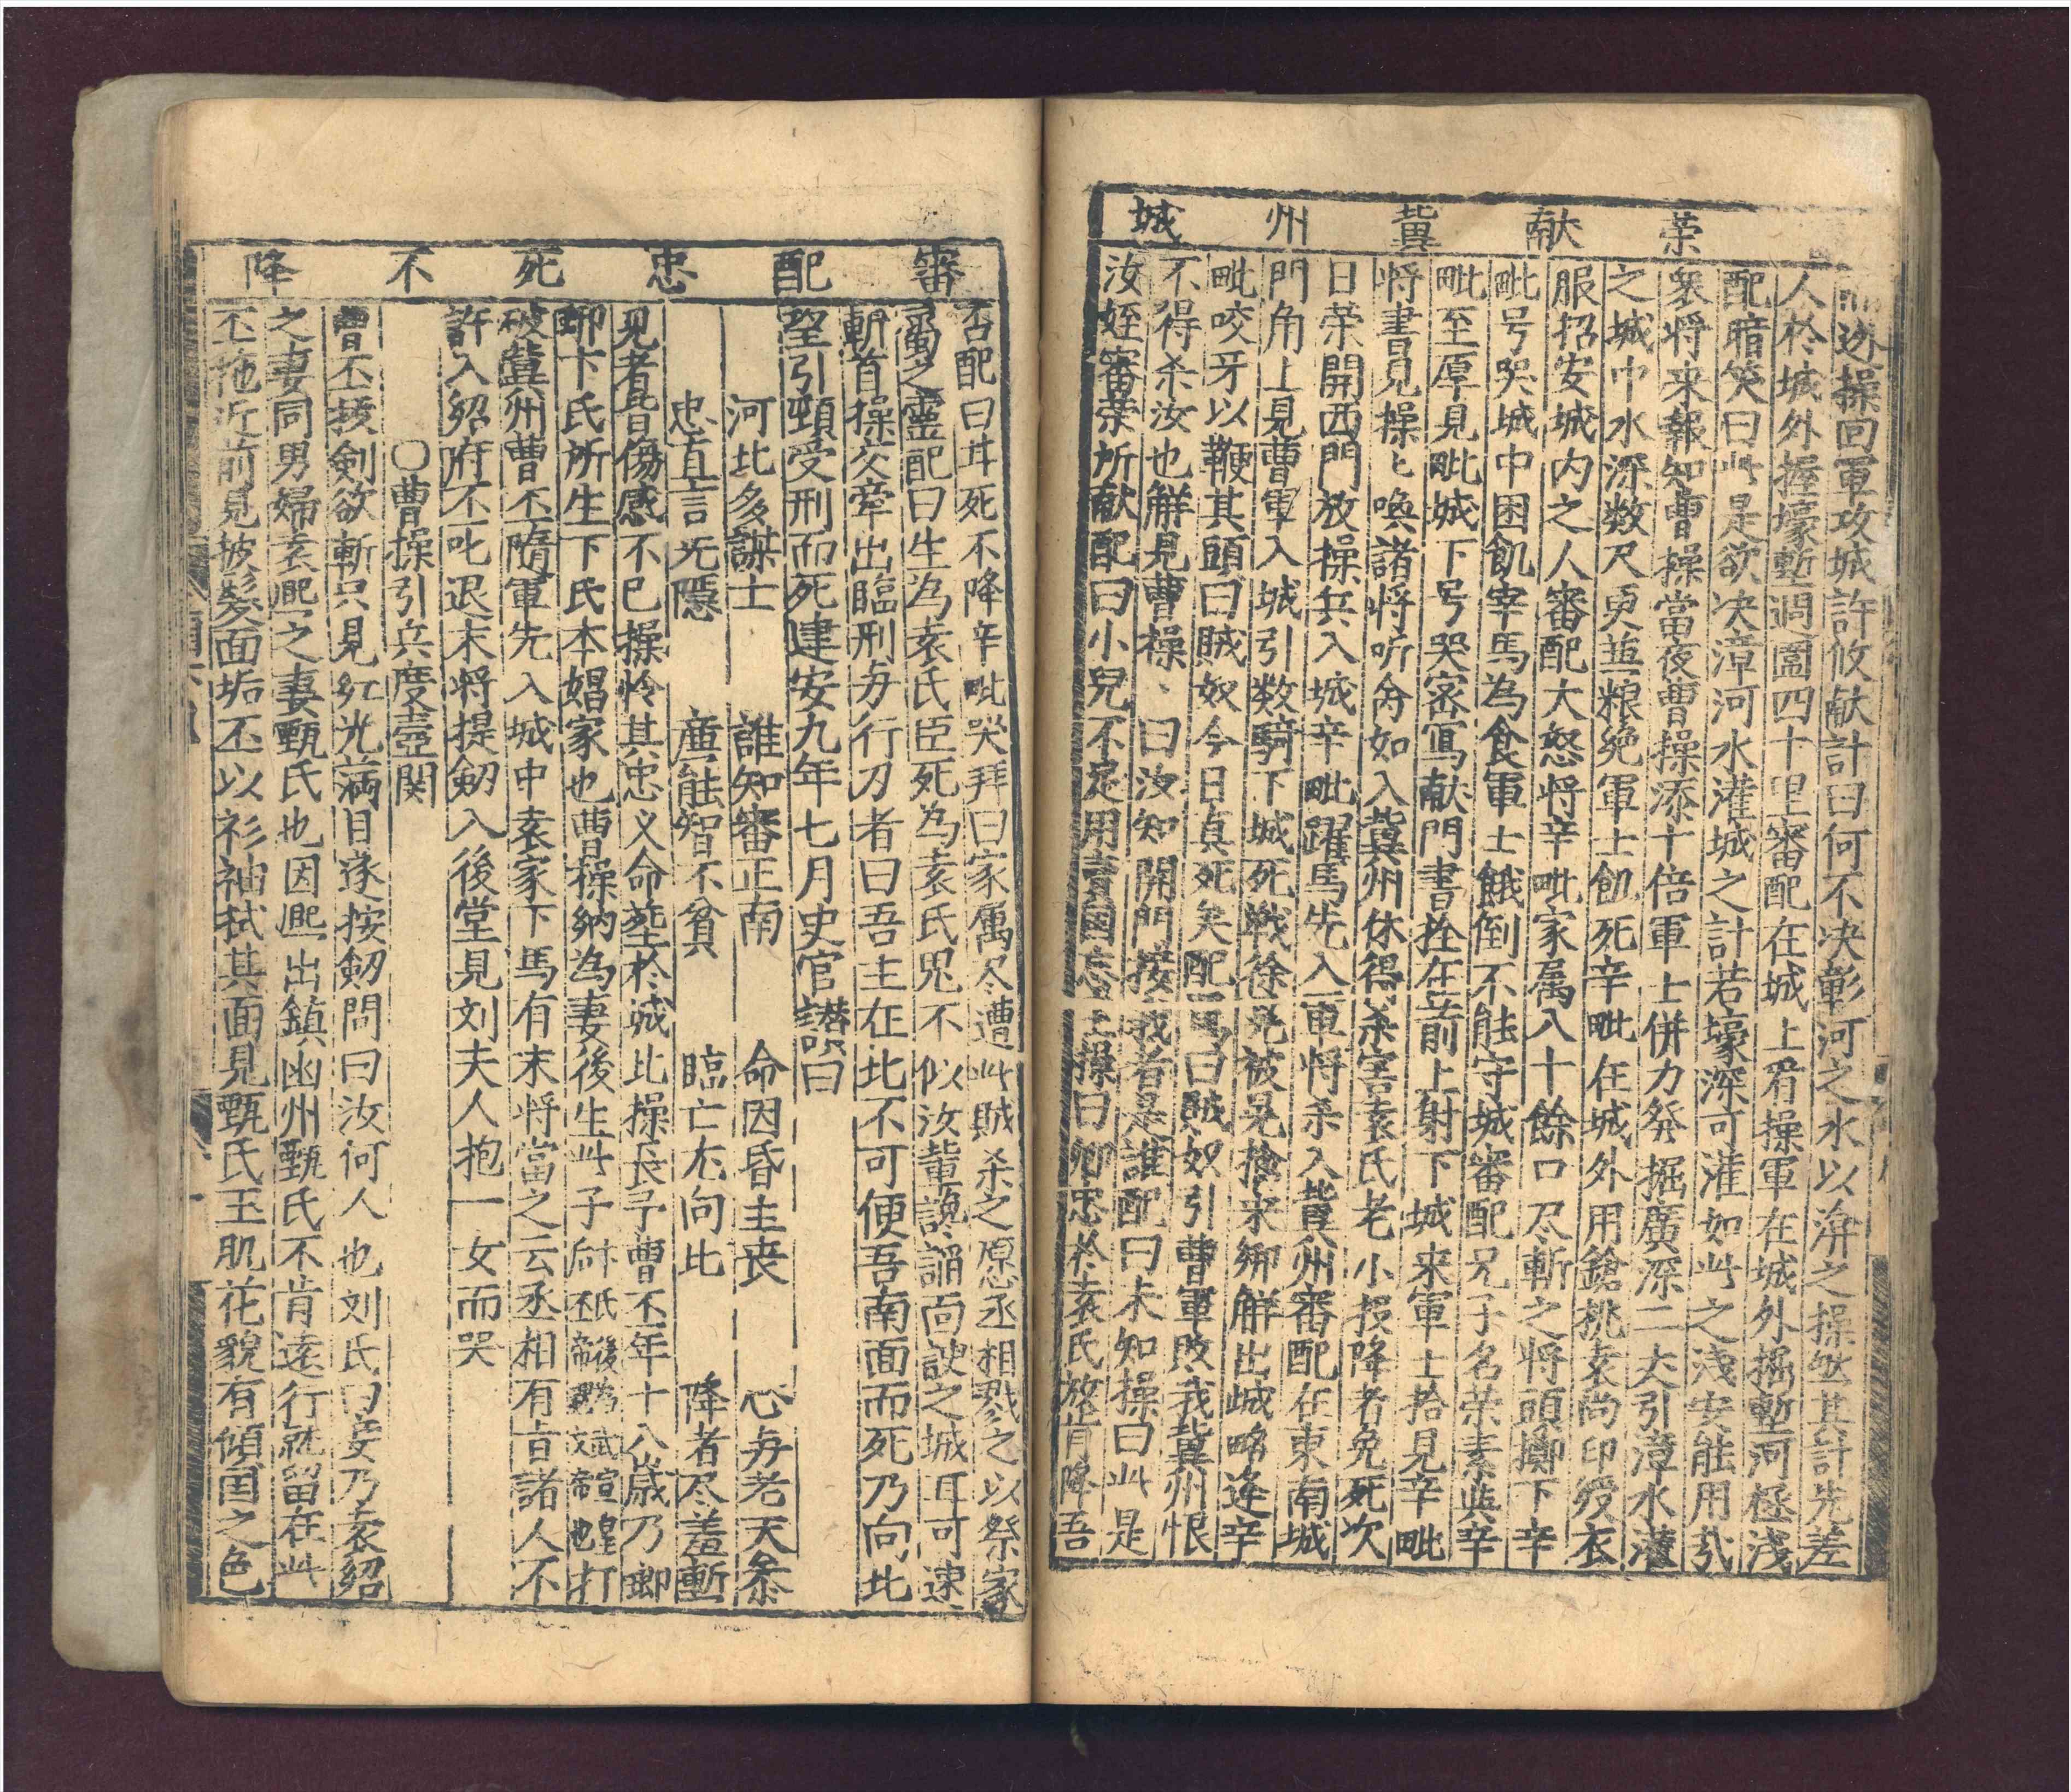 榮献冀州城
迯操回軍攻城許攸献計曰何不决彰河之水以渰之操然其計先差
人於城外握壕塹週圍四十里審配在城上看操軍在城外掘塹河極浅
配暗笑曰此是欲决漳河水灌城之計若壕深可灌如此之浅安能用哉
衆将来報知曹操當夜曹操添十倍軍士併力發掘廣深二丈引漳水灌
之城中水深数尺更兼粮绝軍士飢死辛毗在城外用鎗挑袁尚印綬衣
服招安城内之人審配大怒将辛毗家属八十餘口尽斬之将頭擲下辛
毗号哭城中困飢宰馬為食軍士餓倒不能守城審配兄子名荣素與辛
毗至厚見毗城下号哭密寫献門書拴在箭上射下城来軍士拾見辛毗
将書見操〻喚諸将听命如入冀州休得杀害袁氏老小投降者免死次
日荣開西門放操兵入城辛毗躍馬先入軍将杀入冀州審配在東南城
門角上見曹軍入城引数騎下城死戦徐晃被晃擒来鄉觧出城略逢辛
毗咬牙以鞭其頭曰賊奴今日真死矣配罵曰賊奴引曹軍敗我冀州恨
不得杀汝也觧見曹操、曰汝知開門接我者是誰配曰未知操曰此是
汝姪審荣所献配曰小兒不足用責國忘主操曰卿忠於袁氏放肯降吾
審配忠死不降
否配曰耳死不降辛毗哭拜曰家属尽遭此賊杀之愿丞相戮之以祭家
属之靈配曰生為袁氏臣死為袁氏鬼不似汝輩讒謟面諛之城耳可速
斬首操父牽出臨刑与行刀者曰吾主在北不可便吾南面而死乃向北
望引頸受刑而死建安九年七月史官讃曰
河北多謀士 誰知審正南 命因昏主丧 心与老天叅
忠直言无隱 廉能智不貧 臨亡尤向北 降者尽羞慙
見者皆傷感不已操怜其忠义命塟於城北操长子曹丕年十八歳乃卿
卿卞氏所生下氏本娼家也曹操納為妻後生此子卞氏後為武宣皇后丕帝魏文帝也打
破冀州曹丕隨軍先入城中袁家下馬有末将當之云丞相有旨諸人不
許入紹府不叱退末将提剱入後堂見刘夫人抱一女而哭
〇曹操引兵度壺関
曹丕拔剣欲斬只見紅光满目遂按剱問曰汝何人也刘氏曰妾乃袁紹
之妻同男婦袁熈之妻甄氏也因熈出鎮幽州甄氏不肯逺行就留在此
丕拖近前見披髮面垢丕以衫袖拭其面見甄氏玉肌花貌有傾国之色